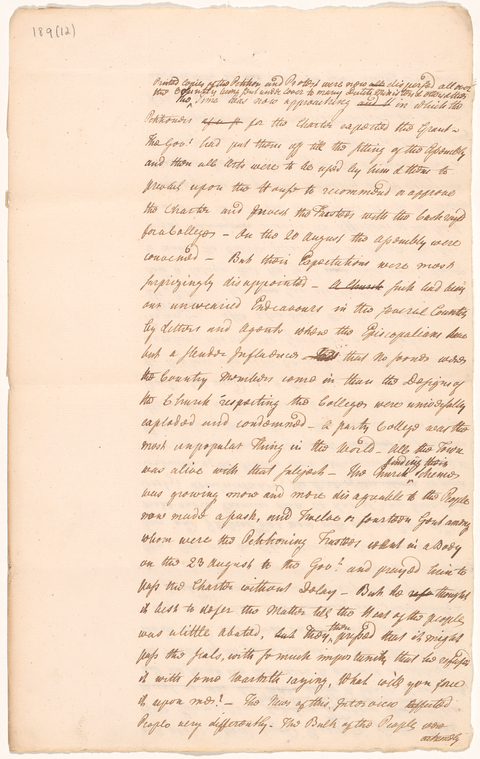 189(12)
Printed copies of the Petition and Protest were now also dispersed all over
the Country being sent under cover to many
the Time was now approaching and it in which the
Petitioners for the Charter expected the Grant –
The Govr had put them off till the sitting of the Assembly
and then all Arts were to be used by him & them to
prevail upon the House to recommend or approve
the Charter and Invest the Trustees with the Cash raised
for a Colledge – On the 20 August the Assembly were
convened – But their Expectations were most
surprizingly disappointed – A Church Such had been
our unwearied Endeavours in the several Counties
by Letters and Agents where the Episcopalians have
but a slender Influence that no sooner were
the Country Members come in than the Designs of
the Church respecting the Colledge were universally
exploded and condemned – a party Colledge was the
most unpopular Thing in the World – All the Town
was alive with that subject – The Church finding their Schemes
was growing more and more disagreable to the People
now made a push, and Twelve or fourteen Gent among
whom were the Petitioning Trustees went in a Body
on the 23 August to the Govr and pressed him to
pass the Charter without Delay – But he thought
it best to defer the Matter till the Heat of the people
was a little abated, but they then pressed that it might
pass the seals, with so much importunity that he refused
it with some Warmth saying, What will you force
it upon me? – The News of this Interview affected
People very differently – The Bulk of the People was